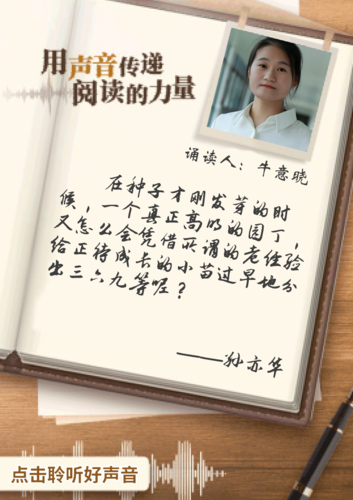 用声音传递
阅读的力量
诵读人：牛意晓
在种子才刚发芽的时
候，一个真正高明的园丁，
又怎么会凭借所谓的老经验
给正待成长的小苗过早地分
出三六九等呢？
——孙亦华
点击聆听好声音